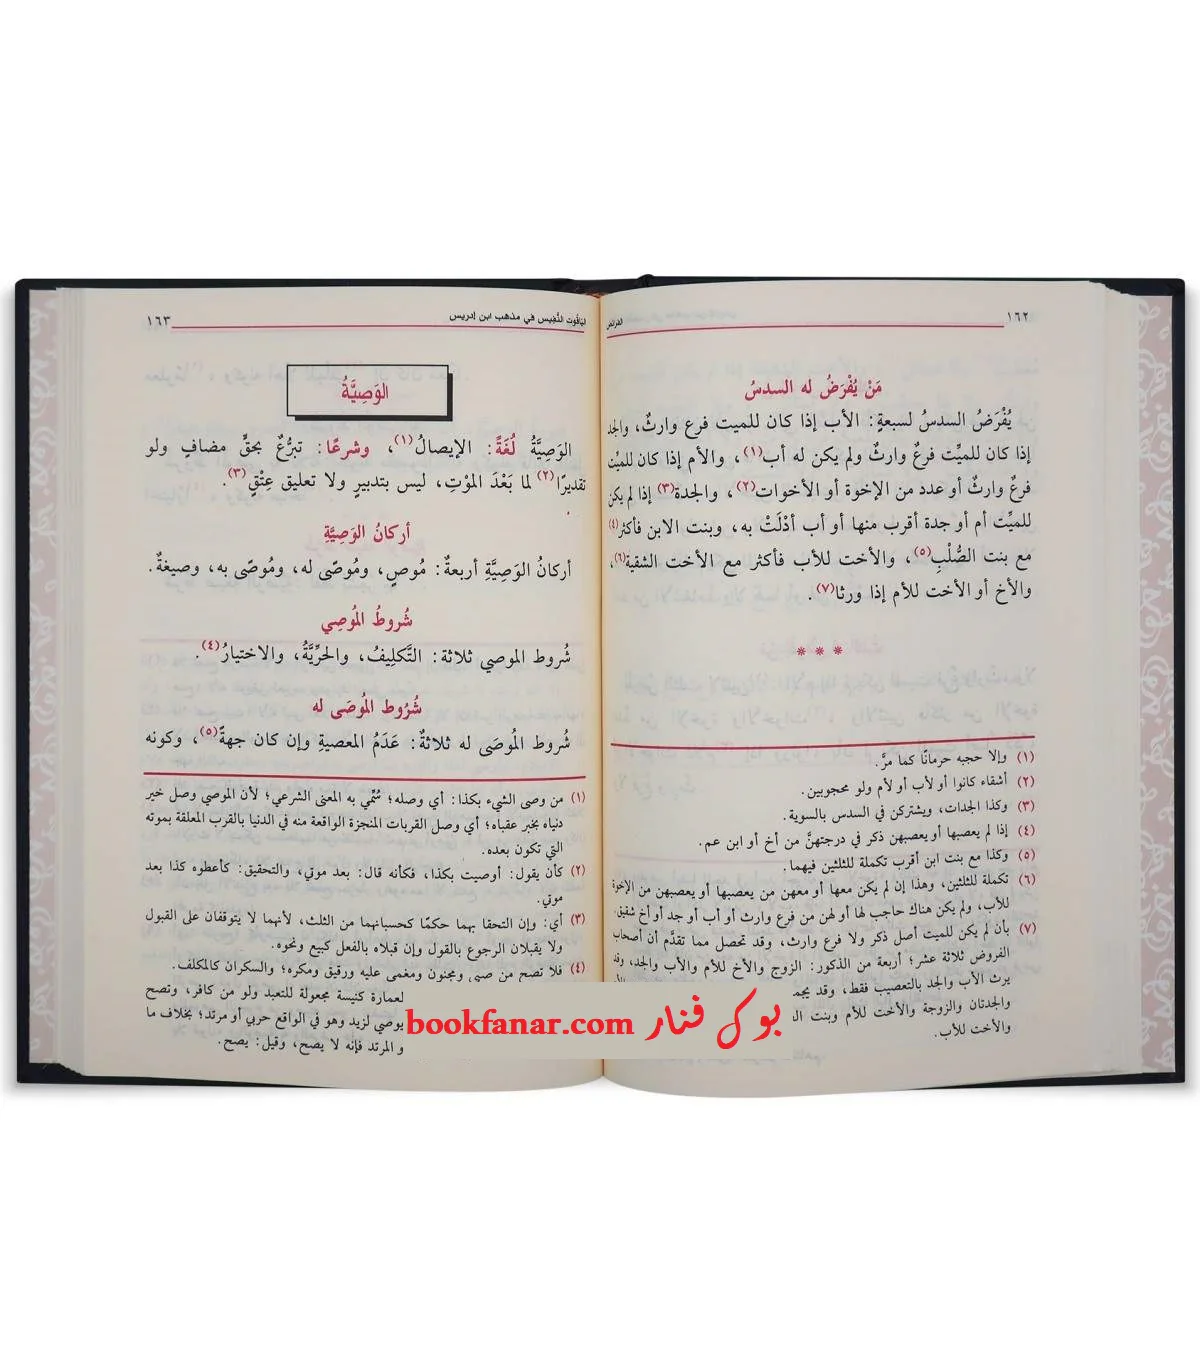 ١٦٢
الفرائض
مَنْ يُفْرَضُ له السدسُ
يُفْرَضُ السدسُ لسبعةٍ: الأب إذا كان للميت فرع وارثٌ، والجد
إذا كان للميِّت فرعٌ وارثٌ ولم يكن له أب(١)، والأم إذا كان للميِّت
فرعٌ وارثٌ أو عدد من الإخوة أو الأخوات(٢)، والجدة(٣) إذا لم يكن
للميِّت أم أو جدة أقرب منها أو أب أدْلَتْ به، وبنت الابن فأكثر(٤)
مع بنت الصُّلْبِ(٥)، والأخت للأب فأكثر مع الأخت الشقيقة(٦)،
والأخ أو الأخت للأم إذا ورثا(٧).
(١) وإلا حجبه حرمانًا كما مرَّ.
(٢) أشقاء كانوا أو لأب أو لأم ولو محجوبين.
(٣) وكذا الجدات، ويشتركن في السدس بالسوية.
(٤) إذا لم يعصبها أو يعصبهن ذكر في درجتهنَّ من أخ أو ابن عم.
(٥) وكذا مع بنت ابن أقرب تكملة للثلثين فيهما.
(٦) تكملة للثلثين، وهذا إن لم يكن معها أو معهن من يعصبها أو يعصبهن من الإخوة
للأب، ولم يكن هناك حاجب لها أو لهن من فرع وارث أو أب أو جد أو أخ شقيق.
(٧) بأن لم يكن للميت أصل ذكر ولا فرع وارث، وقد تحصل مما تقدَّم أن أصحاب
الفروض ثلاثة عشر؛ أربعة من الذكور: الزوج والأخ للأم والأب والجد، وقد
يرث الأب والجد بالتعصيب فقط، وقد
والجدتان والزوجة والأخت للأم وبنت
والأخت للأب.
الياقُوت النَّفِيس في مذهب ابن إدريس
١٦٣
الوَصِيَّةُ
الوَصِيَّةُ لُغَةً: الإيصالُ(١)، وشرعًا: تبرُّعٌ بحقٍّ مضافٍ ولو
تقديرًا(٢) لما بَعْدَ الموْتِ، ليس بتدبيرٍ ولا تعليق عِتْقٍ(٣).
أركانُ الوَصِيَّةِ
أركانُ الوَصِيَّةِ أربعةٌ: مُوصٍ، ومُوصًى له، ومُوصًى به، وصيغةٌ.
شُروطُ المُوصِي
شُروط الموصي ثلاثة: التَّكلِيفُ، والحرِّيَّةُ، والاختيارُ(٤).
شُرُوط المُوصَى له
شُروط المُوصَى له ثلاثةٌ: عَدَمُ المعصيةِ وإن كان جهةً(٥)، وكونه
(١) من وصى الشيء بكذا: أي وصله؛ سُمِّي به المعنى الشرعي؛ لأن الموصي وصل خير
دنياه بخبر عقباه؛ أي وصل القربات المنجزة الواقعة منه في الدنيا بالقرب المعلقة بموته
التي تكون بعده.
(٢) كأن يقول: أوصيت بكذا، فكأنه قال: بعد موتي، والتحقيق: كأعطوه كذا بعد
موتي.
(٣) أي: وإن التحقا بهما حكمًا كحسبانهما من الثلث، لأنهما لا يتوقفان على القبول
ولا يقبلان الرجوع بالقول وإن قبلاه بالفعل كبيع ونحوه.
(٤) فلا تصح من صبي ومجنون ومغمى عليه ورقيق ومكره؛ والسكران كالمكلف.
لعمارة كنيسة مجعولة للتعبد ولو من كافر، وتصح
يوصي لزيد وهو في الواقع حربي أو مرتد؛ بخلاف ما
و المرتد فإنه لا يصح، وقيل: يصح.
بوك فنار bookfanar.com